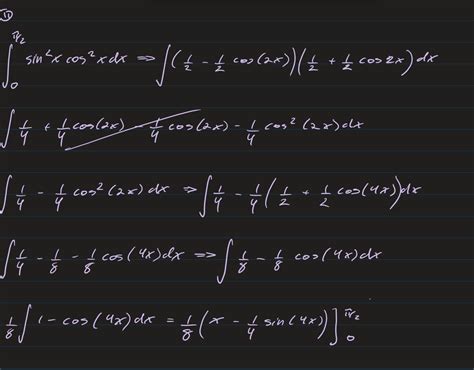 ⑪
∫₀^{π/2} sin²x cos²x dx ⇒ ∫(1/2 - 1/2 cos(2x))(1/2 + 1/2 cos 2x) dx
∫ 1/4 + 1/4 cos(2x) - 1/4 cos(2x) - 1/4 cos²(2x) dx
∫ 1/4 - 1/4 cos²(2x) dx ⇒ ∫ 1/4 - 1/4 (1/2 + 1/2 cos(4x)) dx
∫ 1/4 - 1/8 - 1/8 cos(4x) dx ⇒ ∫ 1/8 - 1/8 cos(4x) dx
1/8 ∫ 1 - cos(4x) dx = 1/8 (x - 1/4 sin(4x)) ]₀^{π/2}